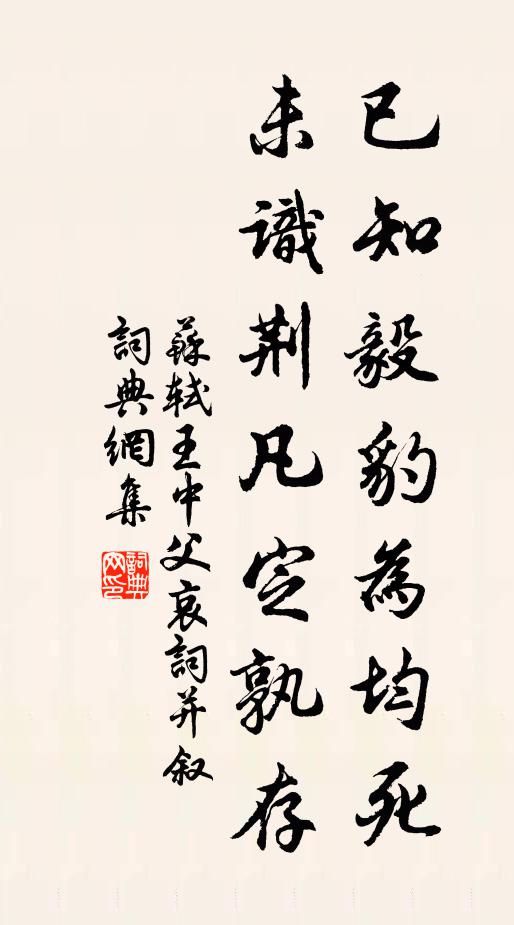 已知毅豹為均死
未識荆凡定孰存
蘇軾王中父哀詞并叙
詞典網集
詞典網印